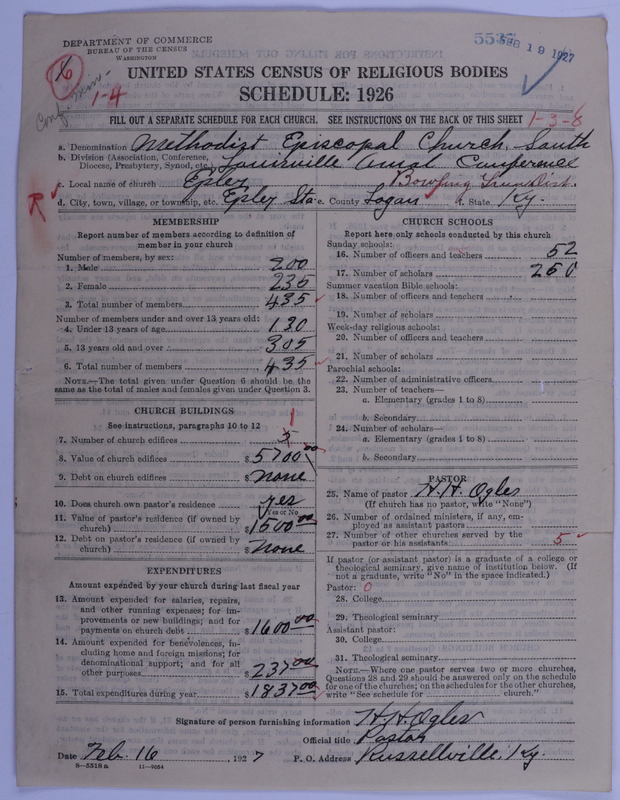 DEPARTMENT OF COMMERCE
BUREAU OF THE CENSUS
WASHINGTON
FEB 19 1927
6
Conf. Mem.
1-4
UNITED STATES CENSUS OF RELIGIOUS BODIES
SCHEDULE: 1926
FILL OUT A SEPARATE SCHEDULE FOR EACH CHURCH. SEE INSTRUCTIONS ON THE BACK OF THIS SHEET
1-3-8
a. Denomination Methodist Episcopal Church, South
b. Division (Association, Conference, Diocese, Presbytery, Synod, etc.) Louisville Conference
c. Local name of church Epley Bowling Green Dist.
R
d. City, town, village, or township, etc. Epley Sta e. County Logan f. State Ky.
MEMBERSHIP
Report number of members according to definition of
member in your church
Number of members, by sex:
1. Male 200
2. Female 235
3. Total number of members 435
Number of members under and over 13 years old:
4. Under 13 years of age 130
5. 13 years old and over 305
6. Total number of members 435
NOTE.—The total given under Question 6 should be the
same as the total of males and females given under Question 3.
CHURCH BUILDINGS
See instructions, paragraphs 10 to 12
1
7. Number of church edifices 5
8. Value of church edifices $ 5700 00
9. Debt on church edifices $ none
10. Does church own pastor's residence yes
Yes or No
11. Value of pastor's residence (if owned by
church) $ 1500 00
12. Debt on pastor's residence (if owned by
church) $ None
EXPENDITURES
Amount expended by your church during last fiscal year
13. Amount expended for salaries, repairs,
and other running expenses; for im-
provements or new buildings; and for
payments on church debt $ 1600 00
14. Amount expended for benevolences, in-
cluding home and foreign missions; for
denominational support; and for all
other purposes $ 237 00
15. Total expenditures during year $ 1837 00
CHURCH SCHOOLS
Report here only schools conducted by this church
Sunday schools:
16. Number of officers and teachers 52
17. Number of scholars 250
Summer vacation Bible schools:
18. Number of officers and teachers
19. Number of scholars
Week-day religious schools:
20. Number of officers and teachers
21. Number of scholars
Parochial schools:
22. Number of administrative officers
23. Number of teachers—
a. Elementary (grades 1 to 8)
b. Secondary
24. Number of scholars—
a. Elementary (grades 1 to 8)
b. Secondary
PASTOR
25. Name of pastor H. H. Ogles
(If church has no pastor, write "None")
26. Number of ordained ministers, if any, em-
ployed as assistant pastors
27. Number of other churches served by the
pastor or his assistants 5
If pastor (or assistant pastor) is a graduate of a college or
theological seminary, give name of institution below. (If
not a graduate, write "No" in the space indicated.)
Pastor: 0
28. College
29. Theological seminary
Assistant pastor:
30. College
31. Theological seminary
NOTE.—Where one pastor serves two or more churches,
Questions 28 and 29 should be answered only on the schedule
for one of the churches; on the schedules for the other churches,
write "See schedule for church."
Signature of person furnishing information H H Ogles
Official title Pastor
Date Feb. 16, 1927 P. O. Address Russellville, Ky.
8—5518 a 11—9054